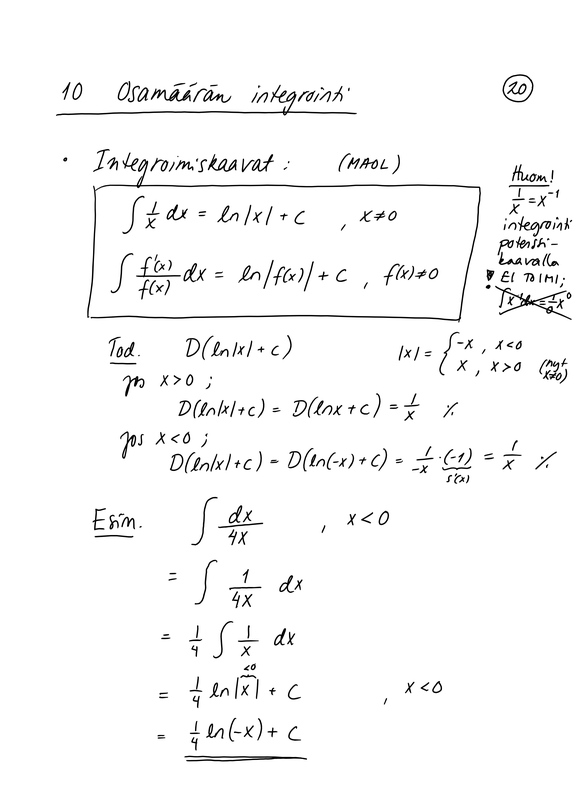 10 Osamäärän integrointi
20
• Integroimiskaavat : (MAOL)
∫ 1/x dx = ln|x| + C , x≠0
∫ f'(x)/f(x) dx = ln|f(x)| + C , f(x)≠0
Huom!
1/x = x^-1
integrointi
potenssi-
kaavalla
! EI TOIMI;
∫x^-1 dx = 1/0 x^0
Tod. D(ln|x| + C)
|x| = { -x , x<0
x , x>0 (nyt x≠0)
jos x>0 ;
D(ln|x|+C) = D(lnx + C) = 1/x ٪
jos x<0 ;
D(ln|x|+C) = D(ln(-x)+C) = 1/-x · (-1) = 1/x ٪
s'(x)
Esim. ∫ dx/4x , x<0
= ∫ 1/4x dx
= 1/4 ∫ 1/x dx
<0
= 1/4 ln|x| + C , x<0
= 1/4 ln(-x) + C